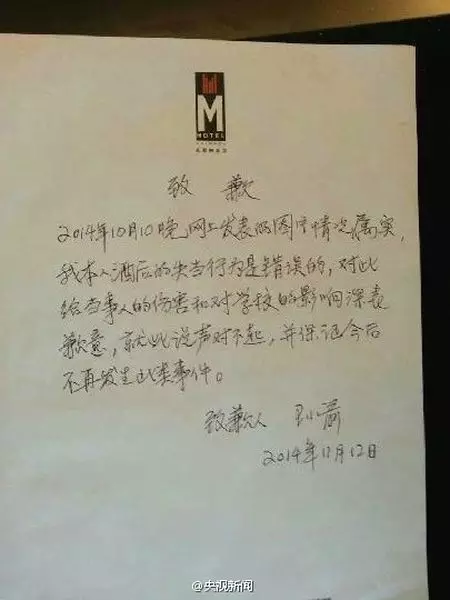 M
MOTEL
致 歉
2014年10月10晚,网上发表的图片情况属实,
我本人酒后的失当行为是错误的,对此
给当事人的伤害和对学校的影响深表
歉意,就此说声对不起,并保证今后
不再发生此类事件。
致歉人
2014年11月12日
@央视新闻